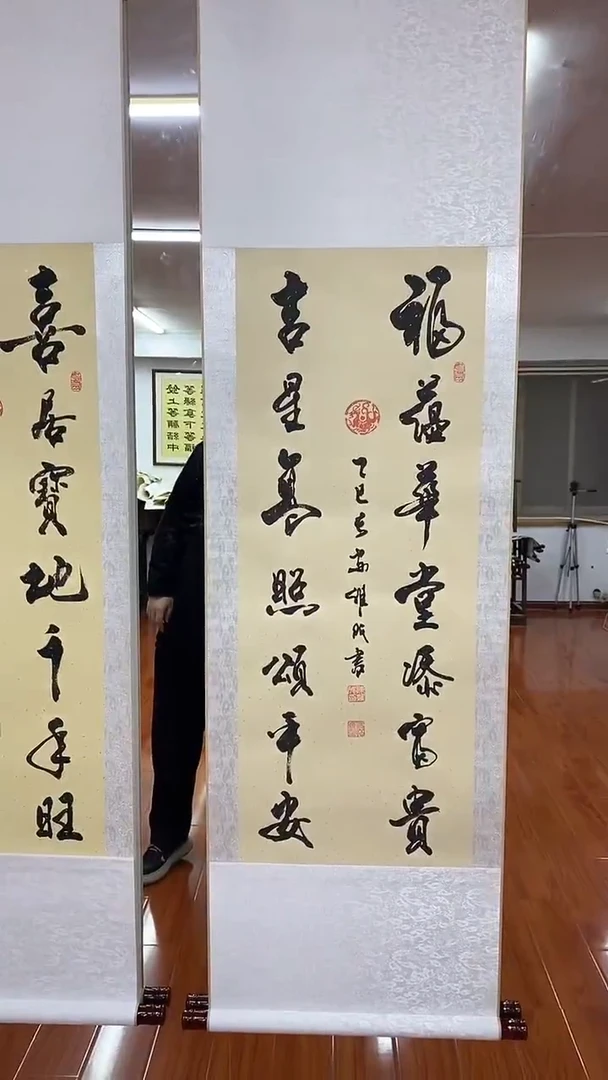 福蘊華堂添富貴
吉星高照頌平安
乙巳安雄書
喜居寶地千年旺